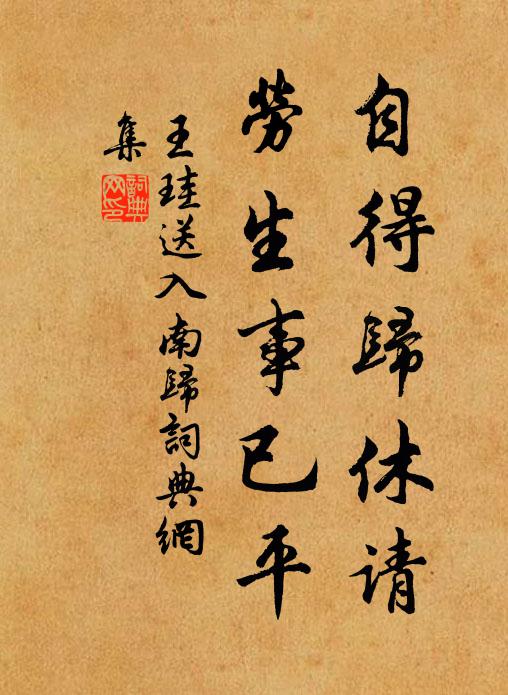 自得歸休请
勞生事已平
王珪送入南歸詞典網
集
詞典网印